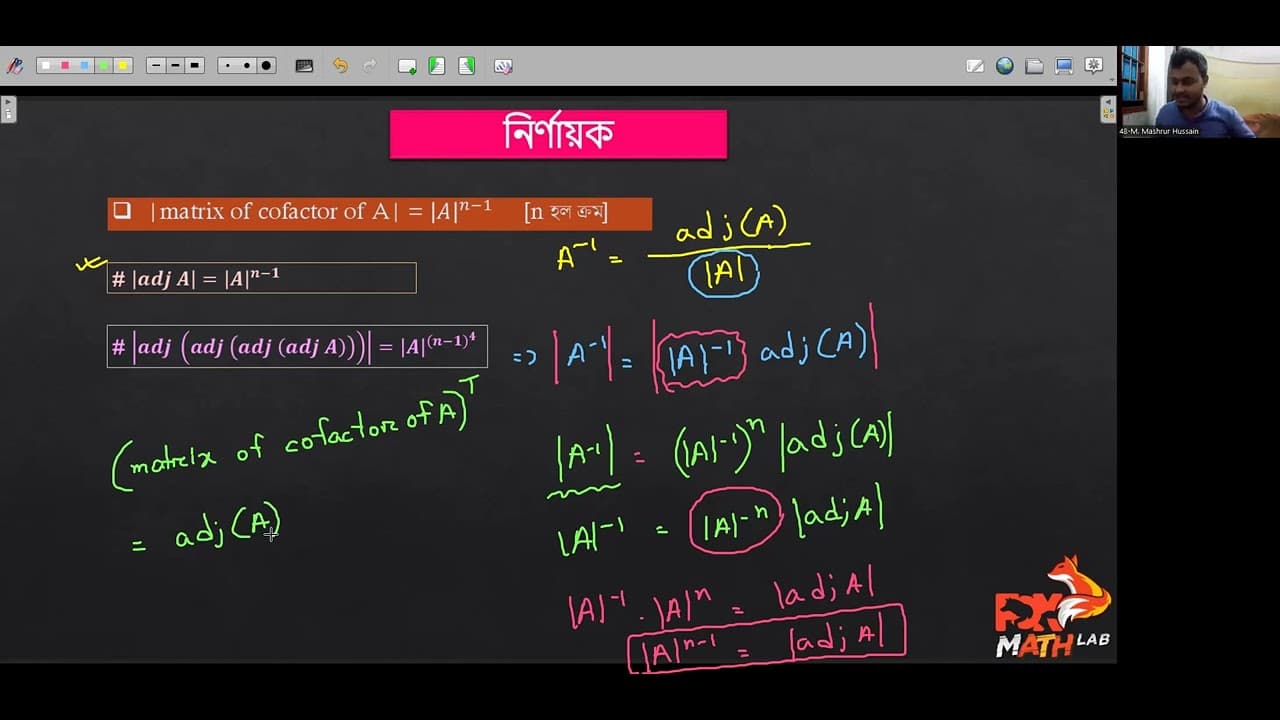 48-M. Mashrur Hussain
নির্ণায়ক
❑ |matrix of cofactor of A| = |A|ⁿ⁻¹ [n হল ক্রম]
# |adj A| = |A|ⁿ⁻¹
# |adj (adj (adj (adj A)))| = |A|⁽ⁿ⁻¹⁾^⁴
(matrix of cofactor of A)ᵀ
= adj(A)
A⁻¹ = adj(A) / |A|
=> |A⁻¹| = ||A|⁻¹ adj(A)|
|A⁻¹| = (|A|⁻¹)ⁿ |adj(A)|
|A|⁻¹ = |A|⁻ⁿ |adj A|
|A|⁻¹ . |A|ⁿ = |adj A|
|A|ⁿ⁻¹ = |adj A|
FOX
MATH LAB